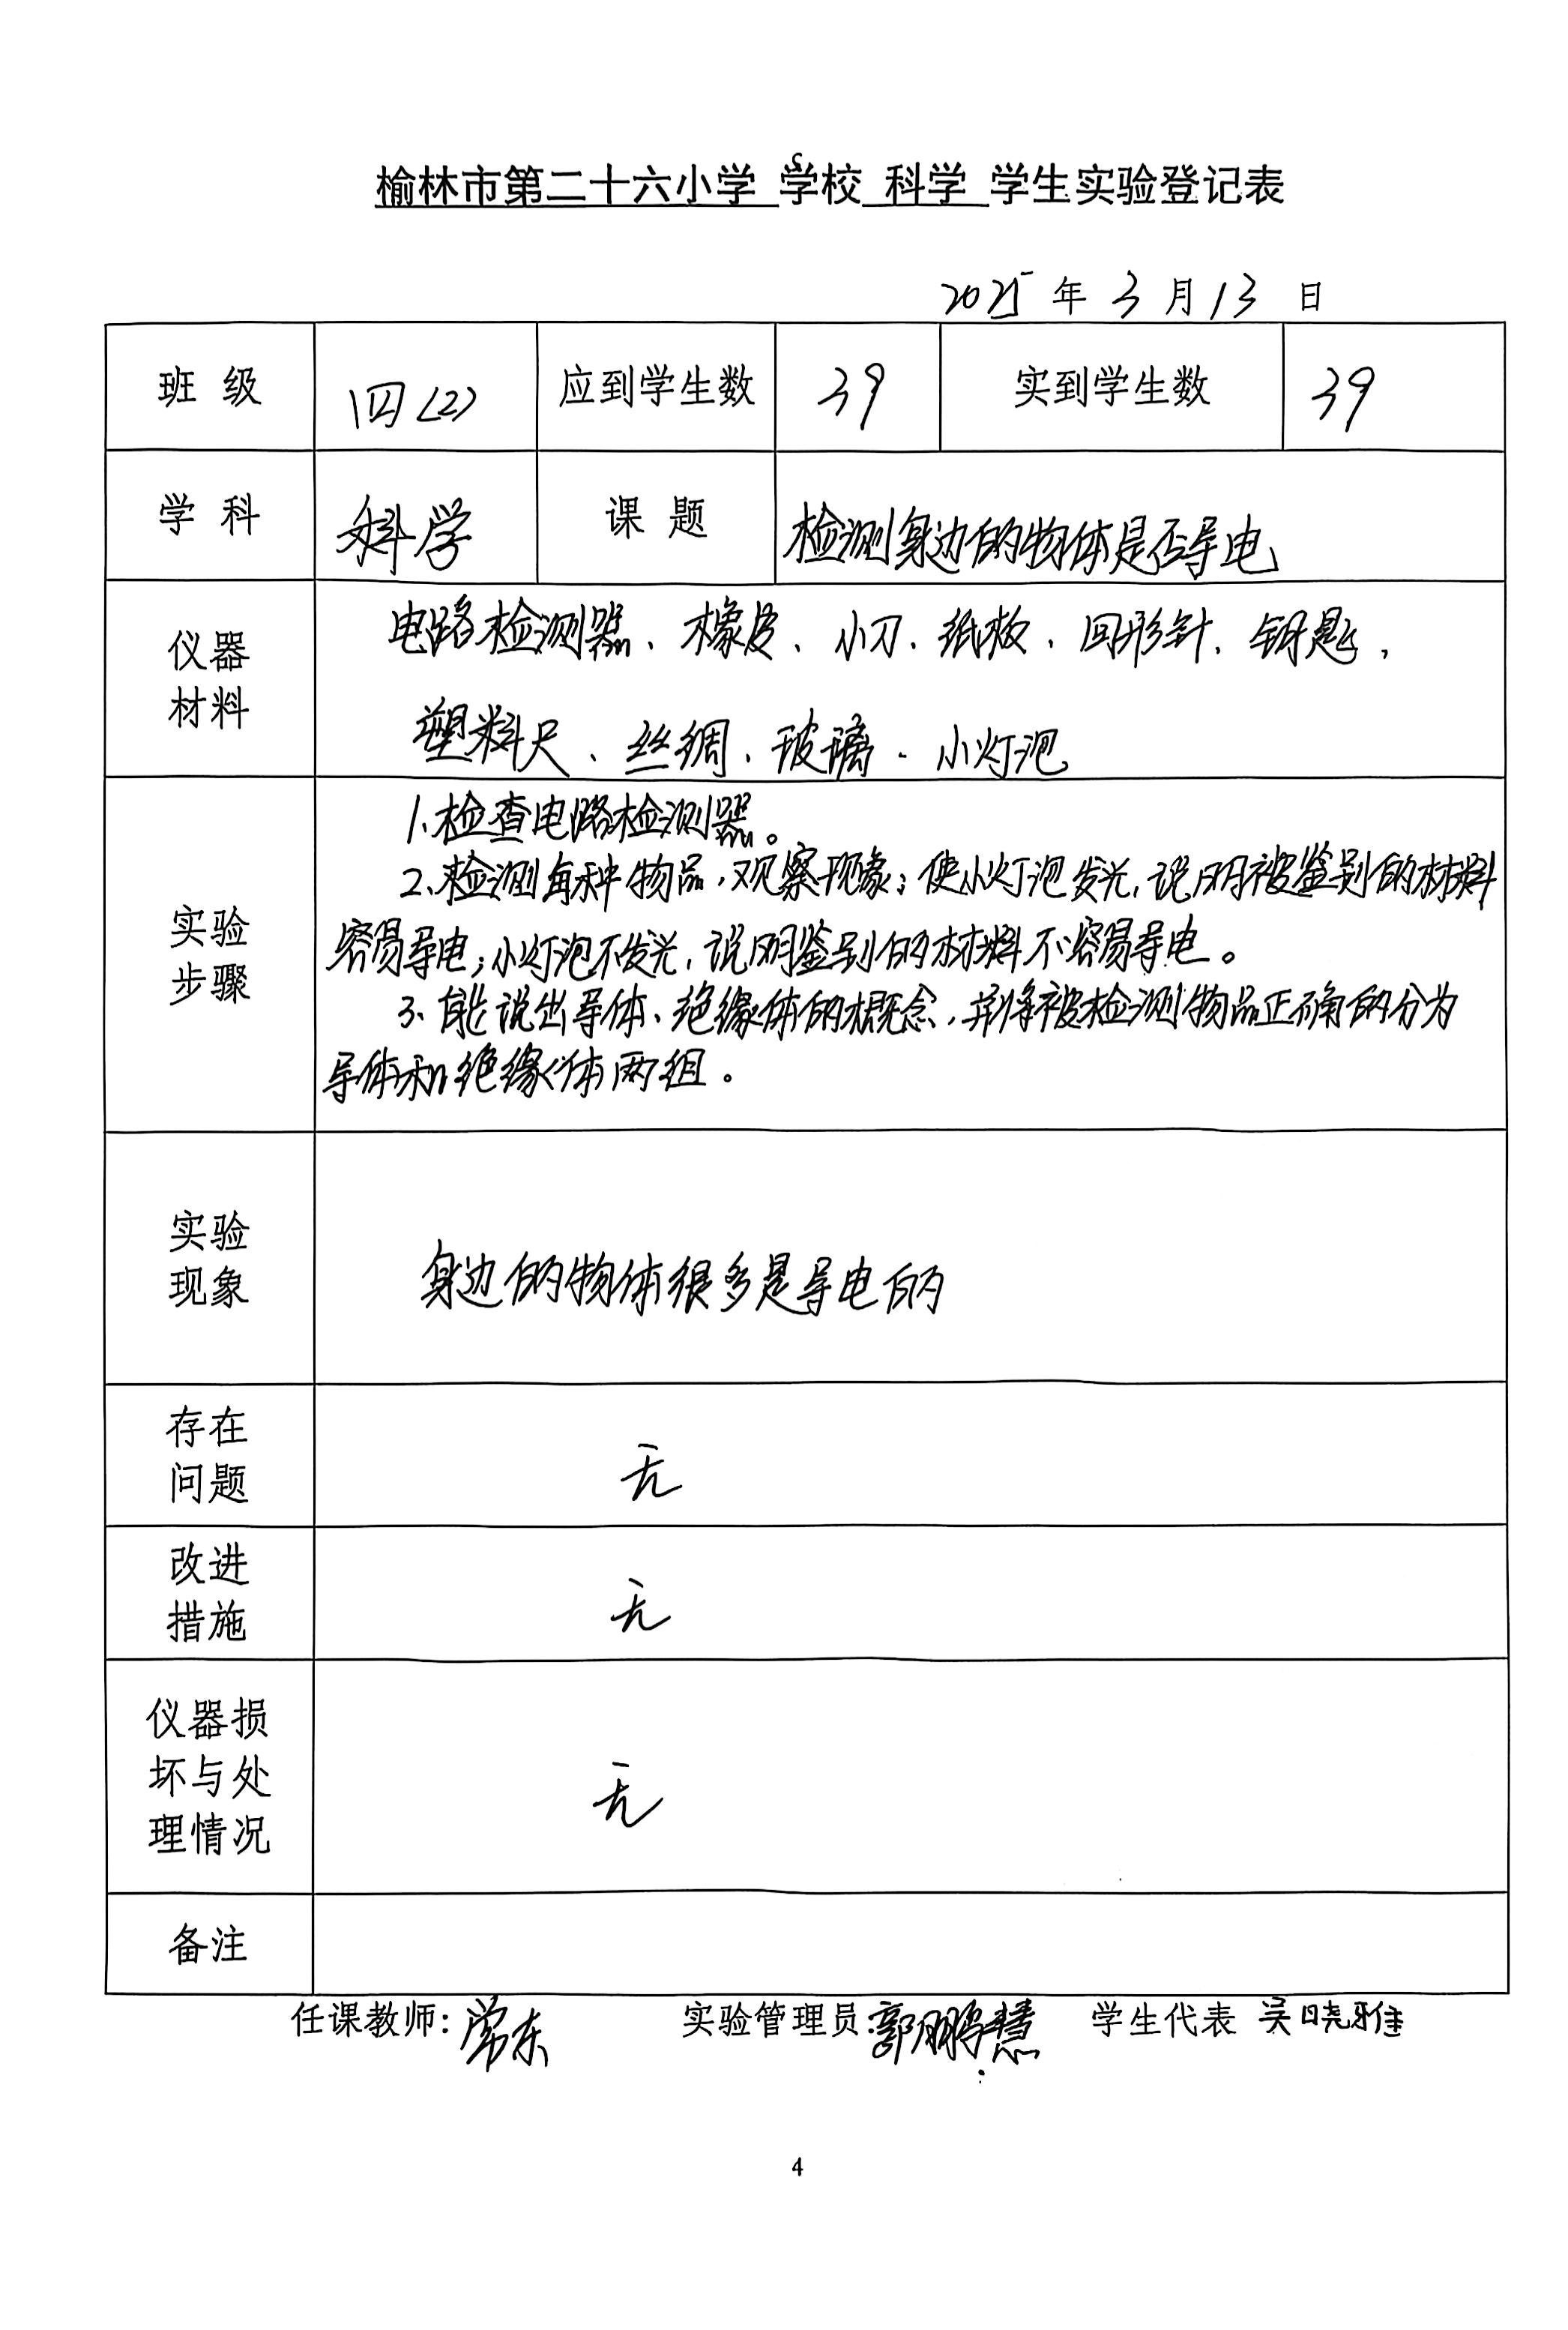 榆林市第二十六小学 学校 科学 学生实验登记表
2025 年 3 月 13 日
班 级 四(2) 应到学生数 39 实到学生数 39
学 科 科学 课 题 检测身边的物体是否导电
仪器
材料
电路检测器、橡皮、小刀、纸板、回形针、钥匙、
塑料尺、丝绸、玻璃、小灯泡
实验
步骤
1、检查电路检测器。
2、检测每种物品,观察现象:使小灯泡发光,说明被鉴别的材料
容易导电;小灯泡不发光,说明鉴别的材料不容易导电。
3、能说出导体、绝缘体的概念,并将被检测物品正确的分为
导体和绝缘体两组。
实验
现象
身边的物体很多是导电的
存在
问题
无
改进
措施
无
仪器损
坏与处
理情况
无
备注
任课教师:常东 实验管理员:郭鹏慧 学生代表 吴晓雅
4